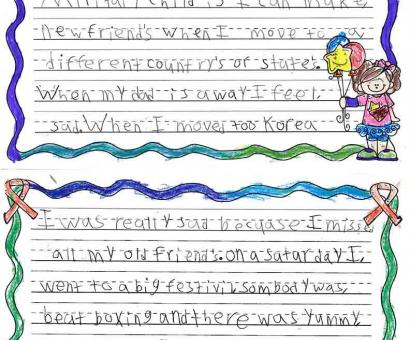 Military child is I can make
new friends when I move to a
different country's or states.
When my dad is away I feel
sad. When I moves too Korea
I was really sad becyase I misse
all my old friends. on a saturday I,
went to a big festivil sombody was,
beat boxing and there was yummy